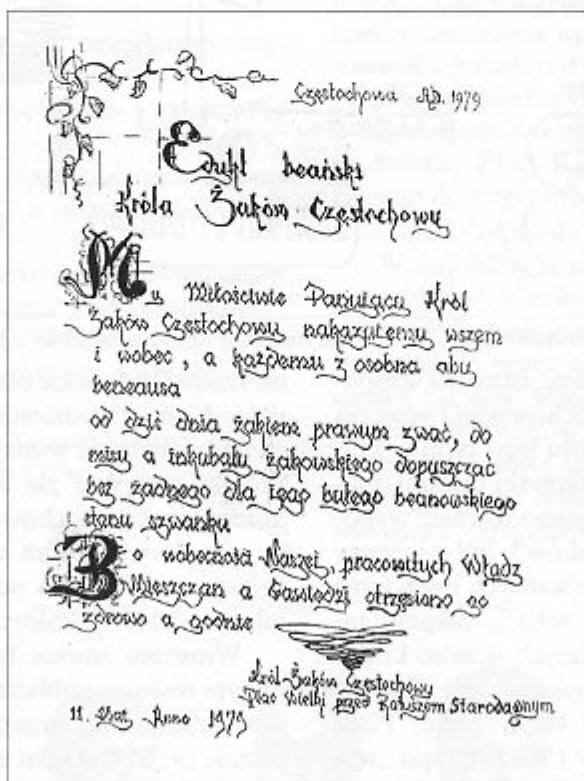 Częstochowa AD. 1979
Edukt beański
Króla Żaków Częstochowy
My Miłościwie Panujący Król
Żaków Częstochowy nakazujemy wszem
i wobec, a każdemu z osobna aby
beneausa
od dziś dnia żakiem prawym zwać, do
misy a inkubału żakowskiego dopuszczać
bez żadnego dla jego byłego beanowskiego
stanu szwanku
Bo wobecności Naszej, pracowitych Władz
Mieszczan a Gawiedzi otrzęsiono go
zdrowo a godnie
Król Żaków Częstochowy
Plac wielki przed Ratuszem Starodawnym
11. Anno 1979